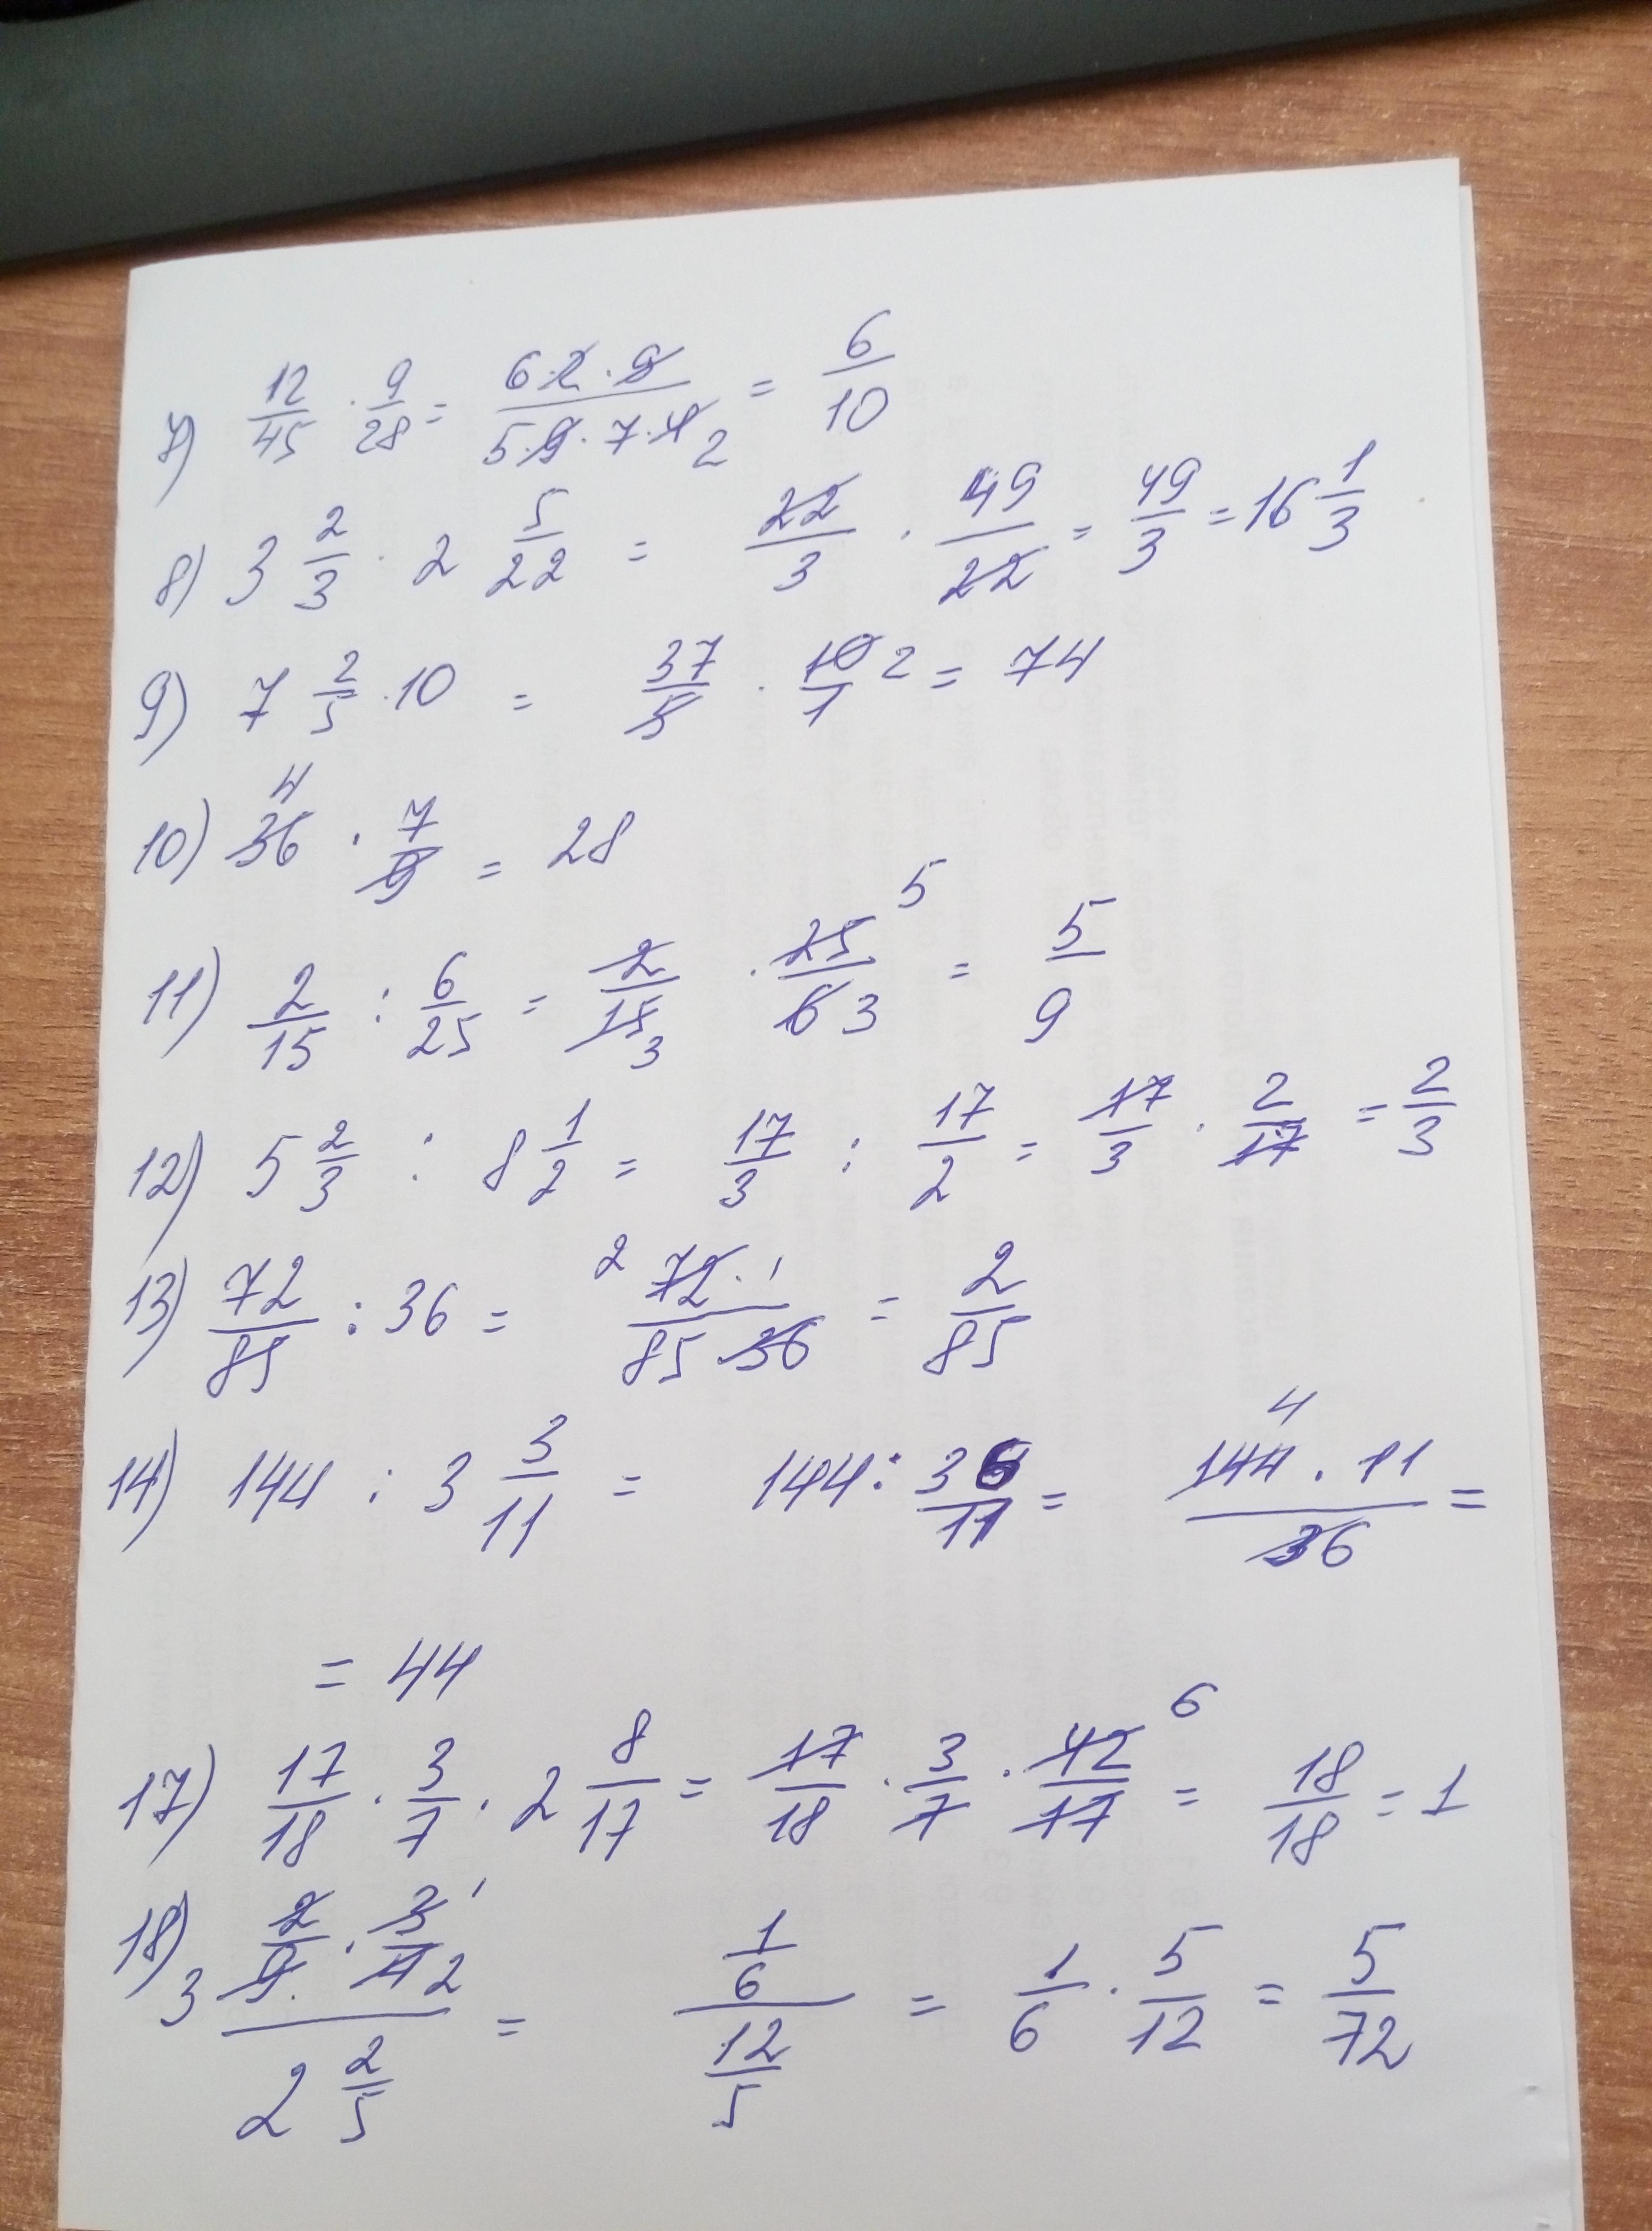 7) 12/45 · 9/28 = 6·2·9/5·9·7·4 2 = 6/10
8) 3 2/3 · 2 5/22 = 22/3 · 49/22 = 49/3 = 16 1/3
9) 7 2/5 · 10 = 37/5 · 10/1 2 = 74
10) 36 4 · 7/9 = 28
11) 2/15 : 6/25 = 2/15 3 · 25 5/6 3 = 5/9
12) 5 2/3 : 8 1/2 = 17/3 : 17/2 = 17/3 · 2/17 = 2/3
13) 72/85 : 36 = 2 72·1/85 36 = 2/85
14) 144 : 3 3/11 = 144 : 36/11 = 4 144 · 11/36 =
= 44
17) 17/18 · 3/7 · 2 8/17 = 17/18 · 3/7 · 42 6/17 = 18/18 = 1
18) 3 2/9 · 3 1/4 2 / 2 2/5 = 1/6 / 12/5 = 1/6 · 5/12 = 5/72